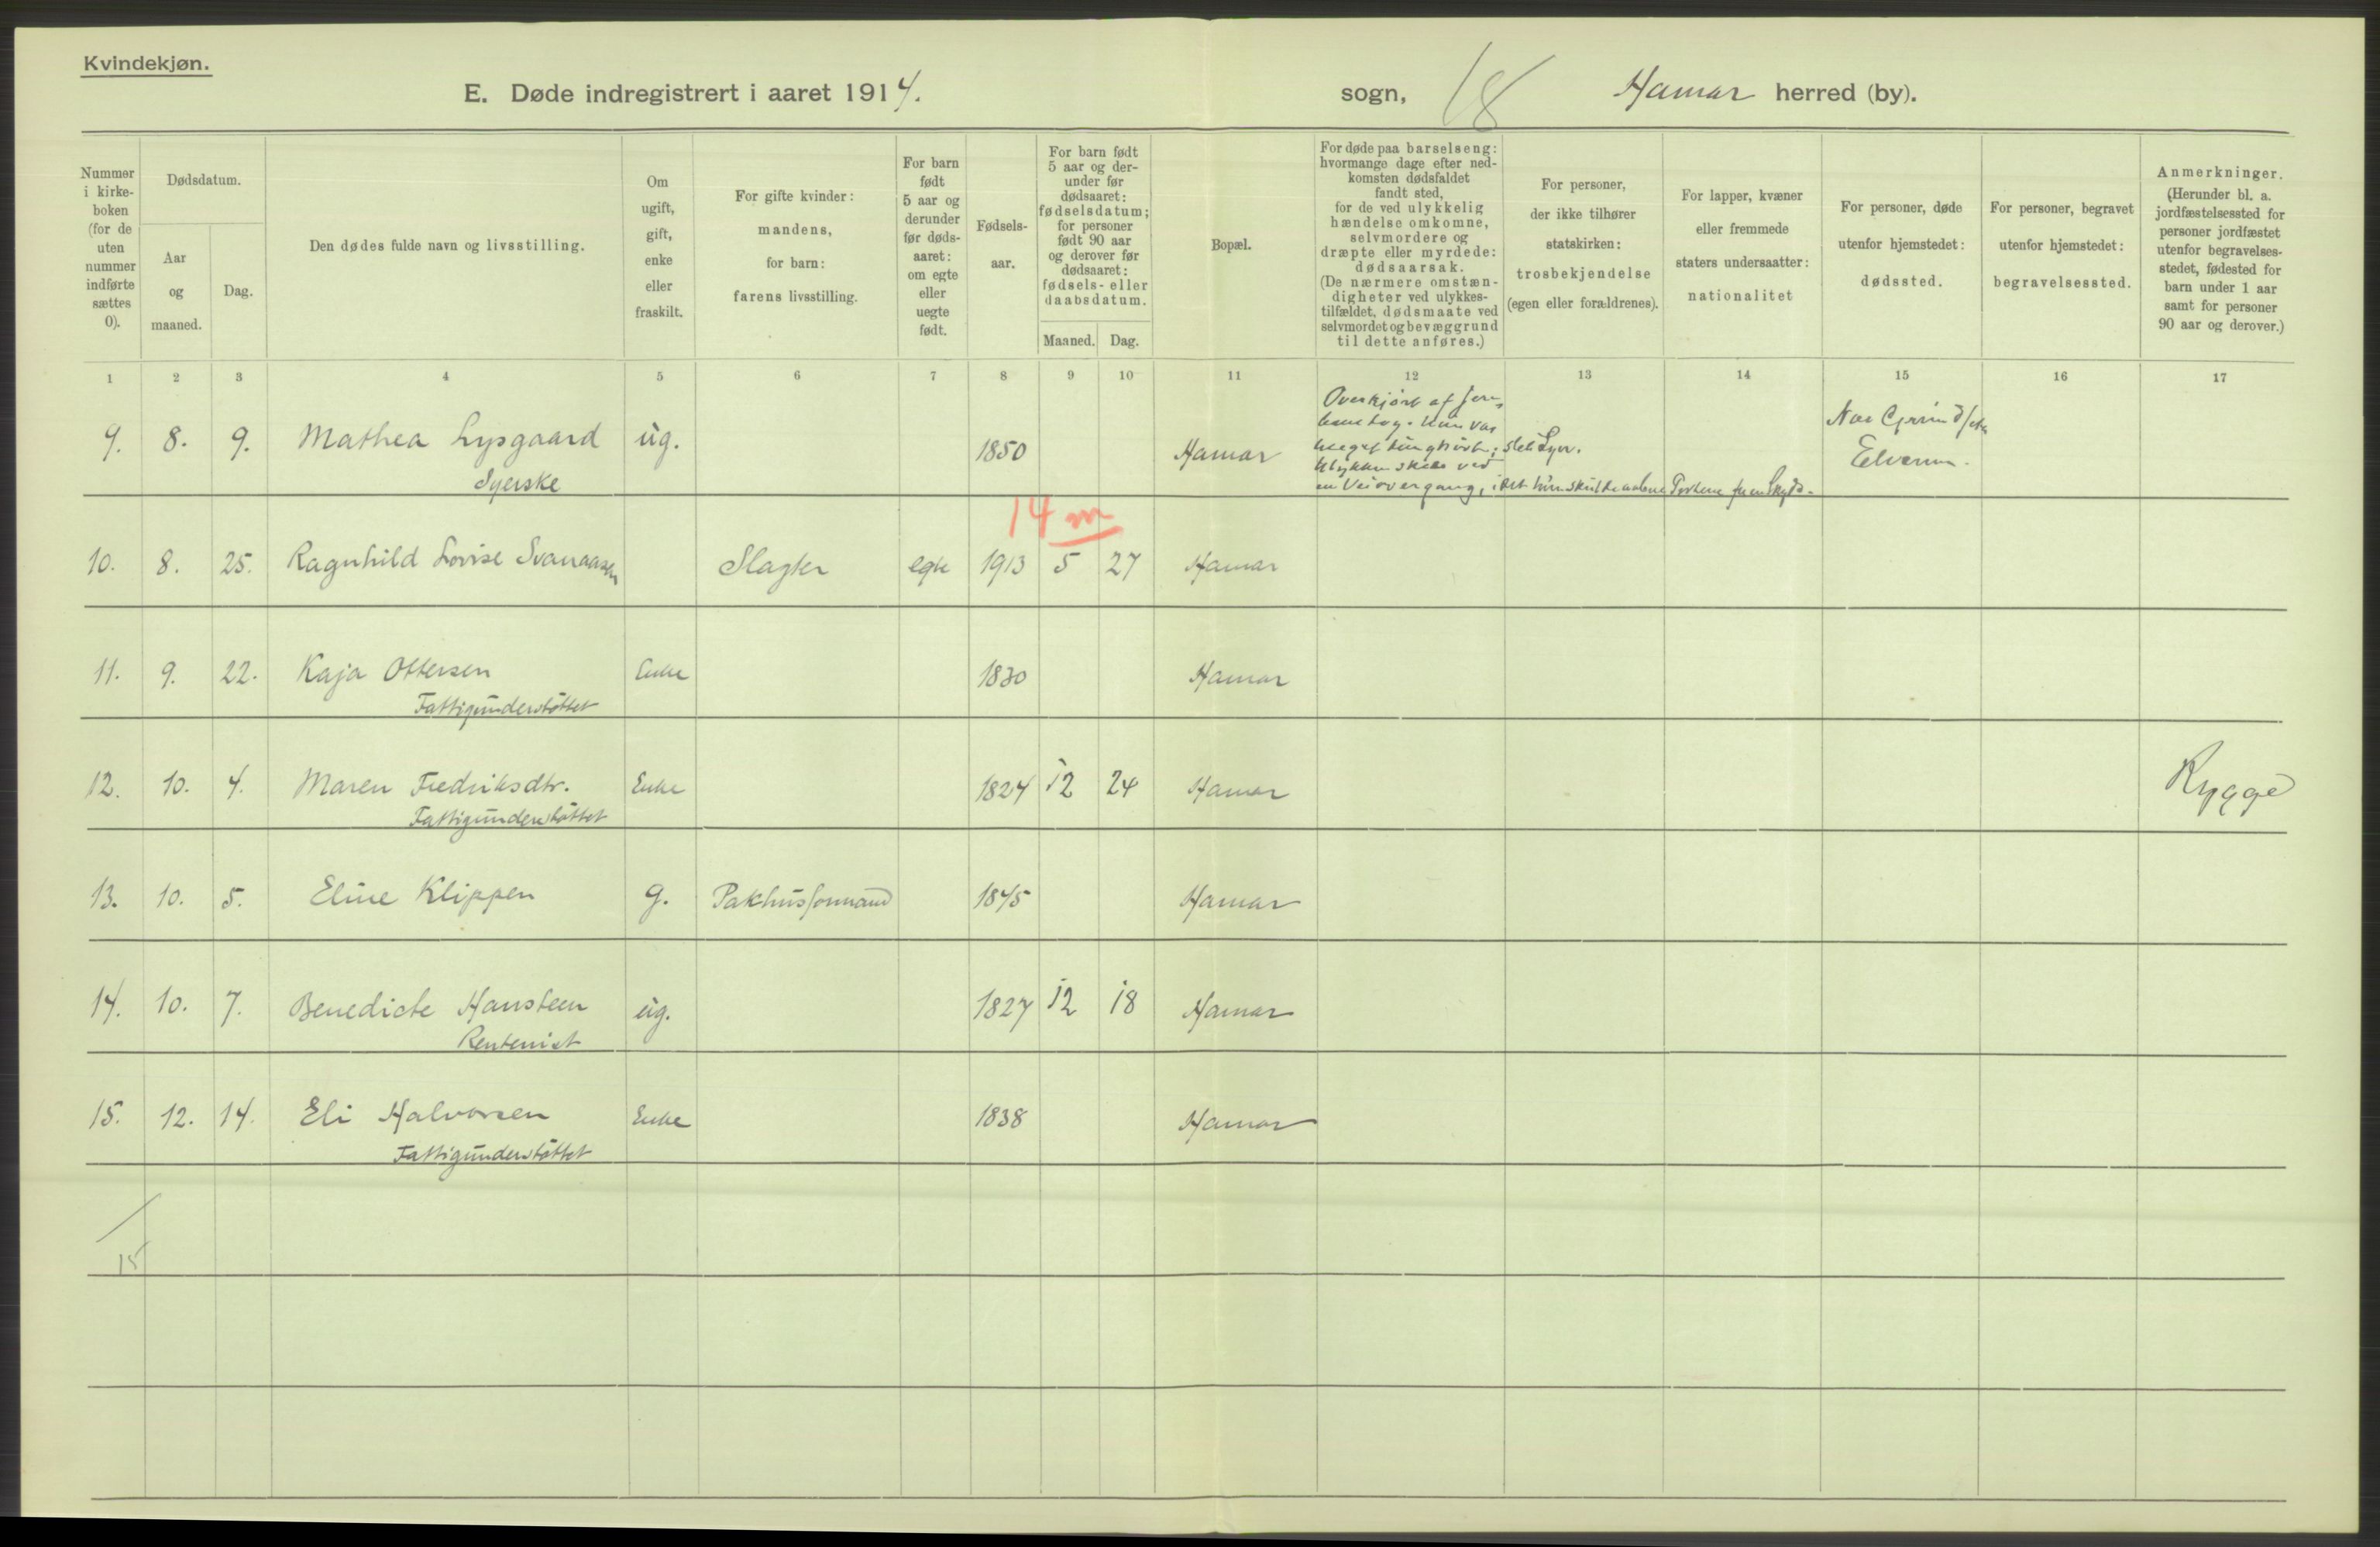 Kvindekjøn.
E. Døde indregistrert i aaret 1914.
sogn, 18 Hamar herred (by).
Nummer i kirke-boken (for de uten nummer indførte sættes 0).
Dødsdatum.
Aar og maaned.
Dag.
Den dødes fulde navn og livsstilling.
Om ugift, gift, enke eller fraskilt.
For gifte kvinder: mandens, for barn: farens livsstilling.
For barn født 5 aar og derunder før døds-aaret: om egte eller uegte født.
Fødsels-aar.
For barn født 5 aar og der-under før dødsaaret: fødselsdatum; for personer født 90 aar og derover før dødsaaret: fødsels- eller daabsdatum.
Maaned. Dag.
Bopæl.
For døde paa barselseng: hvormange dage efter ned-komsten dødsfaldet fandt sted, for de ved ulykkelig hændelse omkomne, selvmordere og dræpte eller myrdede: dødsaarsak. (De nærmere omstæn-digheter ved ulykkes-tilfældet, dødsmaate ved selvmordet og bevæggrund til dette anføres.)
For personer, der ikke tilhører statskirken: trosbekjendelse (egen eller forældrenes).
For lapper, kvæner eller fremmede staters undersaatter: nationalitet
For personer, døde utenfor hjemstedet: dødssted.
For personer, begravet utenfor hjemstedet: begravelsessted.
Anmerkninger. (Herunder bl. a. jordfæstelsessted for personer jordfæstet utenfor begravelses-stedet, fødested for barn under 1 aar samt for personer 90 aar og derover.)
1 2 3 4 5 6 7 8 9 10 11 12 13 14 15 16 17
9. 8. 9. Mathea Lysgaard ug. 1850 Hamar
Syerske
Overkjørt af jern-
banetog. Hun var
meget tunghørt; slet Syn.
Ulykken skede ved
en Veiovergang, idet hun skulde aabne Portene for en Skyds-
Elverum.
14 m
10. 8. 25. Ragnhild Lovise Svanaasen Slagter egte 1913 5 27 Hamar
11. 9. 22. Kaja Ottersen Enke 1830 Hamar
Fattigunderstøttet
12. 10. 4. Maren Fredriksdtr. Enke 1824 12 24 Hamar Rygge
Fattigunderstøttet
13. 10. 5. Eline Klippen g. Pakhusformand 1845 Hamar
14. 10. 7. Benedicte Hansteen ug. 1827 12 18 Hamar
Rentenist
15. 12. 14. Eli Halvorsen Enke 1838 Hamar
Fattigunderstøttet
15